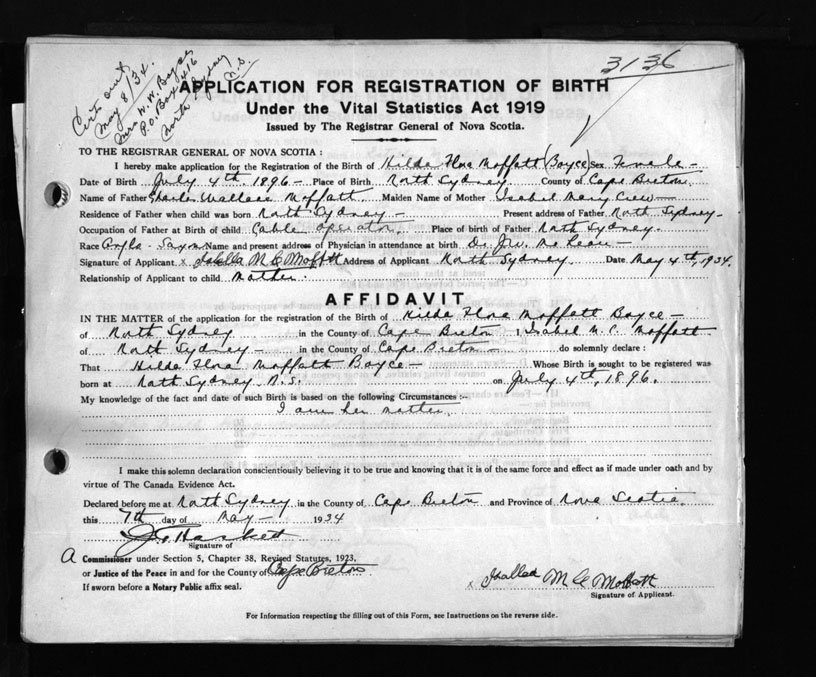 Cert. sent
May 8/34.
Mrs. W. W. Boyce
P.O. Box 416
North Sydney
N.S.
3136
APPLICATION FOR REGISTRATION OF BIRTH
Under the Vital Statistics Act 1919
Issued by The Registrar General of Nova Scotia.
TO THE REGISTRAR GENERAL OF NOVA SCOTIA :
I hereby make application for the Registration of the Birth of Hilda Flora Moffatt (Boyce) Sex Female
Date of Birth July 4th. 1896 Place of Birth North Sydney County of Cape Breton
Name of Father Charles Wallace Moffatt Maiden Name of Mother Isabel Mary Crew
Residence of Father when child was born North Sydney Present address of Father North Sydney
Occupation of Father at Birth of child Cable operator Place of birth of Father North Sydney
Race Anglo-Saxon Name and present address of Physician in attendance at birth Dr. McLean
Signature of Applicant x M C Moffatt Address of Applicant North Sydney Date May 4th, 1934.
Relationship of Applicant to child mother
AFFIDAVIT
IN THE MATTER of the application for the registration of the Birth of Hilda Flora Moffatt Boyce
of North Sydney in the County of Cape Breton I Isabel M. C. Moffatt
of North Sydney in the County of Cape Breton do solemnly declare :
That Hilda Flora Moffatt Boyce Whose Birth is sought to be registered was
born at North Sydney N.S. on July 4th, 1896.
My knowledge of the fact and date of such Birth is based on the following Circumstances :-
I am her mother.
I make this solemn declaration conscientiously believing it to be true and knowing that it is of the same force and effect as if made under oath and by
virtue of The Canada Evidence Act.
Declared before me at North Sydney in the County of Cape Breton and Province of Nova Scotia
this 7th day of May 1934
Hackett
Signature of
A Commissioner under Section 5, Chapter 38, Revised Statutes, 1923,
or Justice of the Peace in and for the County of Cape Breton
If sworn before a Notary Public affix seal.
x M C Moffatt
Signature of Applicant.
For Information respecting the filling out of this Form, see Instructions on the reverse side.